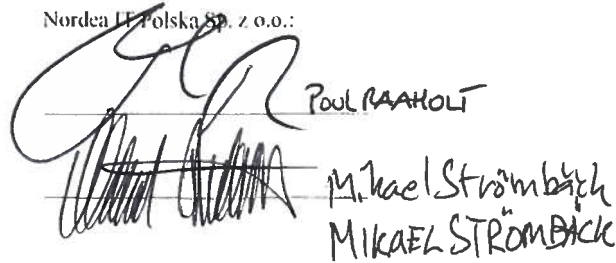 Nordea IT Polska Sp. z o.o.:
POUL RAAHOLT
Mikael Strömbäck
MIKAEL STRÖMBÄCK